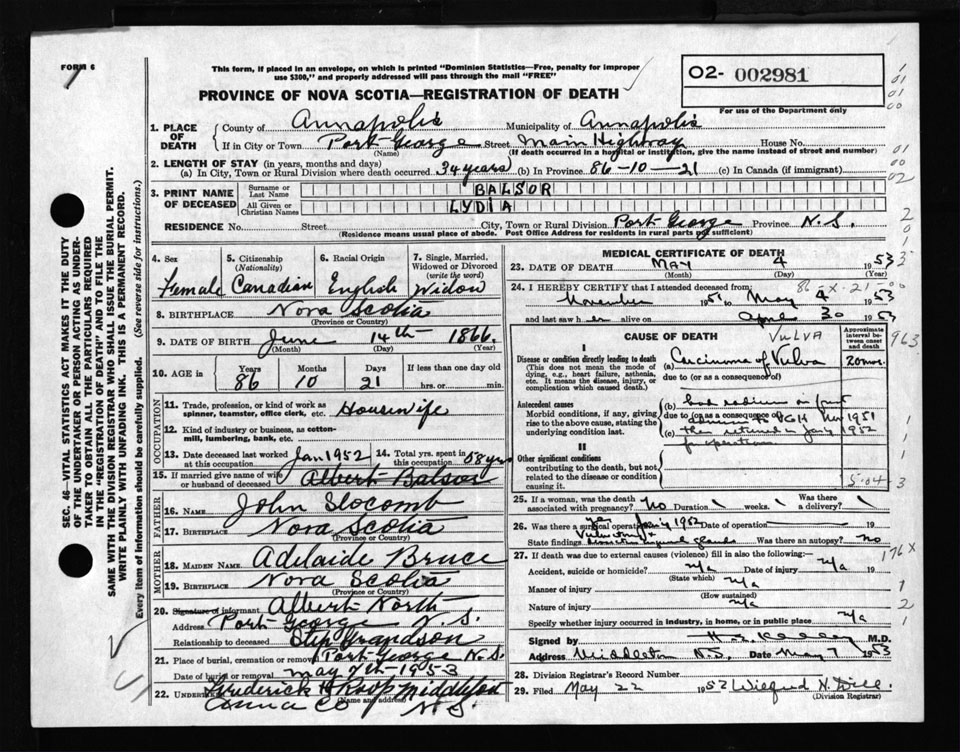 FORM 6
This form, if placed in an envelope, on which is printed "Dominion Statistics—Free, penalty for improper
use $300," and properly addressed will pass through the mail "FREE"
PROVINCE OF NOVA SCOTIA—REGISTRATION OF DEATH
02- 002981
For use of the Department only
1. PLACE OF DEATH { County of Annapolis Municipality of Annapolis
If in City or Town Port George Street Main Highway House No.
(Name) (If death occurred in a hospital or institution, give the name instead of street and number)
2. LENGTH OF STAY (in years, months and days)
(a) In City, Town or Rural Division where death occurred 34 years (b) In Province 86-10-21 (c) In Canada (if immigrant)
3. PRINT NAME OF DECEASED { Surname or Last Name BALSOR
All Given or Christian Names LYDIA
RESIDENCE No. Street City, Town or Rural Division Port George Province N.S.
(Residence means usual place of abode. Post Office Address for residents in rural parts not sufficient)
SEC. 46—VITAL STATISTICS ACT MAKES IT THE DUTY
OF THE UNDERTAKER OR PERSON ACTING AS UNDER-
TAKER TO OBTAIN ALL THE PARTICULARS REQUIRED
IN THE "REGISTRATION OF DEATH" AND TO FILE THE
SAME WITH THE DIVISION REGISTRAR WHO SHALL ISSUE THE BURIAL PERMIT.
WRITE PLAINLY WITH UNFADING INK. THIS IS A PERMANENT RECORD.
Every item of information should be carefully supplied. (See reverse side for instructions.)
4. Sex Female
5. Citizenship (Nationality) Canadian
6. Racial Origin English
7. Single, Married, Widowed or Divorced (write the word) Widow
8. BIRTHPLACE Nova Scotia
(Province or Country)
9. DATE OF BIRTH June 14th 1866
(Month) (Day) (Year)
10. AGE in Years 86 Months 10 Days 21 If less than one day old
hrs. or min.
OCCUPATION
11. Trade, profession, or kind of work as spinner, teamster, office clerk, etc. Housewife
12. Kind of industry or business, as cotton-mill, lumbering, bank, etc.
13. Date deceased last worked at this occupation Jan 1952 14. Total yrs. spent in this occupation 58 yrs
15. If married give name of wife or husband of deceased Albert Balsor
FATHER
16. NAME John Slocomb
17. BIRTHPLACE Nova Scotia
(Province or Country)
MOTHER
18. MAIDEN NAME Adelaide Bruce
19. BIRTHPLACE Nova Scotia
(Province or Country)
20. Signature of informant Albert North
Address Port George N.S.
Relationship to deceased Step Grandson
21. Place of burial, cremation or removal Port George N.S.
Date of burial or removal May 7th 1953
22. UNDERTAKER Frederick H Roop Middleton
(Name and address)
Anna Co N.S.
MEDICAL CERTIFICATE OF DEATH
23. DATE OF DEATH MAY 4 1953
(Month) (Day) (Year)
86-X-21-00
24. I HEREBY CERTIFY that I attended deceased from:
November 1951 to May 4 1953
and last saw her alive on April 30 1953
CAUSE OF DEATH VULVA
Approximate interval between onset and death
963
I
Disease or condition directly leading to death
(This does not mean the mode of dying, e.g., heart failure, asthenia, etc. It means the disease, injury, or complication which caused death.)
(a) Carcinoma of Vulva 20 mos.
due to (or as a consequence of)
Antecedent causes
Morbid conditions, if any, giving rise to the above cause, stating the underlying condition last.
(b) had radium on
due to (or as a consequence of) VGH Nov 1951
(c) then returned in Jan'y 1952
for operation
II
Other significant conditions
contributing to the death, but not related to the disease or condition causing it.
5-04 3
25. If a woman, was the death associated with pregnancy? No Duration weeks. Was there a delivery?
26. Was there a surgical operation? yes Jan'y 1952 Date of operation 19
State findings Was there an autopsy? no
27. If death was due to external causes (violence) fill in also the following:—
176X
Accident, suicide or homicide? n/a Date of injury n/a 19
(State which)
Manner of injury n/a
(How sustained)
Nature of injury n/a
Specify whether injury occurred in industry, in home, or in public place n/a
Signed by M.D.
Address Middleton N.S. Date May 7 1953
28. Division Registrar's Record Number
29. Filed May 22 1952 Wilfred N.
(Division Registrar)